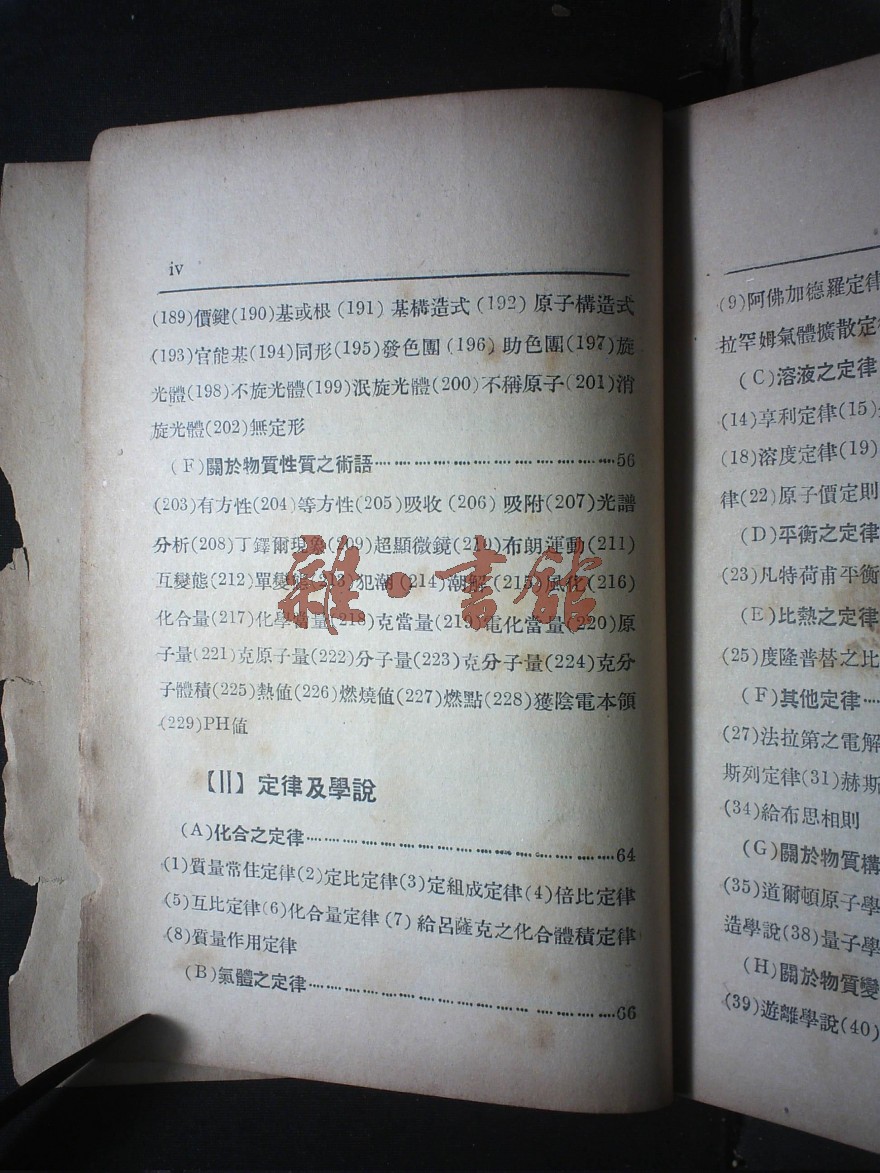 iv
(189)價鍵(190)基或根(191)基構造式(192)原子構造式
(193)官能基(194)同形(195)發色團(196)助色團(197)旋
光體(198)不旋光體(199)泯旋光體(200)不稱原子(201)消
旋光體(202)無定形
(F)關於物質性質之術語……56
(203)有方性(204)等方性(205)吸收(206)吸附(207)光譜
分析(208)丁鐸爾現象(209)超顯微鏡(210)布朗運動(211)
互變態(212)單變態(213)犯潮(214)潮解(215)風化(216)
化合量(217)化學當量(218)克當量(219)電化當量(220)原
子量(221)克原子量(222)分子量(223)克分子量(224)克分
子體積(225)熱值(226)燃燒值(227)燃點(228)獲陰電本領
(229)PH值
【II】定律及學說
(A)化合之定律……64
(1)質量常住定律(2)定比定律(3)定組成定律(4)倍比定律
(5)互比定律(6)化合量定律(7)給呂薩克之化合體積定律
(8)質量作用定律
(B)氣體之定律……66
雜·書館
(9)阿佛加德羅定律
拉罕姆氣體擴散定
(C)溶液之定律
(14)享利定律(15)
(18)溶度定律(19)
律(22)原子價定則
(D)平衡之定律
(23)凡特荷甫平衡
(E)比熱之定律
(25)度隆普替之比
(F)其他定律
(27)法拉第之電解
斯列定律(31)赫斯
(34)給布思相則
(G)關於物質構
(35)道爾頓原子學
造學說(38)量子學
(H)關於物質變
(39)遊離學說(40)